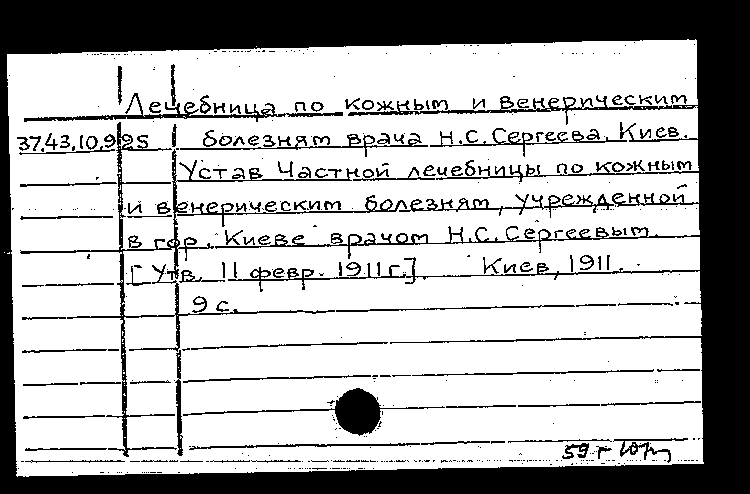 Лечебница по кожным и венерическим
37.43.10.925 болезням врача Н.С.Сергеева. Киев.
Устав Частной лечебницы по кожным
и венерическим болезням, учрежденной
в гор. Киеве врачом Н.С.Сергеевым.
[Утв. 11 февр. 1911 г.]. Киев, 1911.
9 с.
59 г